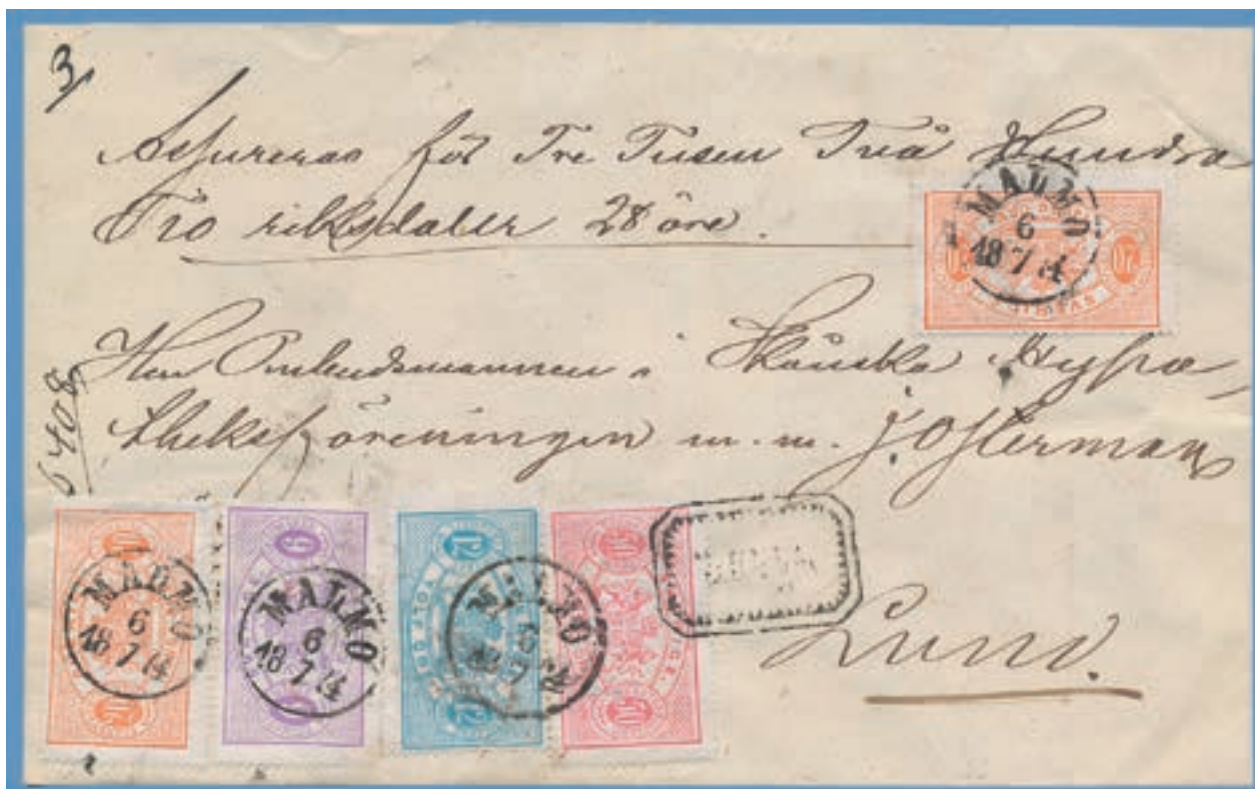 3
Assureras för Tre Tusen Två Hundra
Tio riksdaler 28 öre.
MALMÖ
6
18 7 74
20
Herr Ombudsmannen i Skånska Hypo-
theksföreningen m.m. J. Osterman
6408
20
MALMÖ
6
18 7 74
6
MALMÖ
6
18 7 74
12
TOLF
MALMÖ
6
18 7 74
50
Lund.